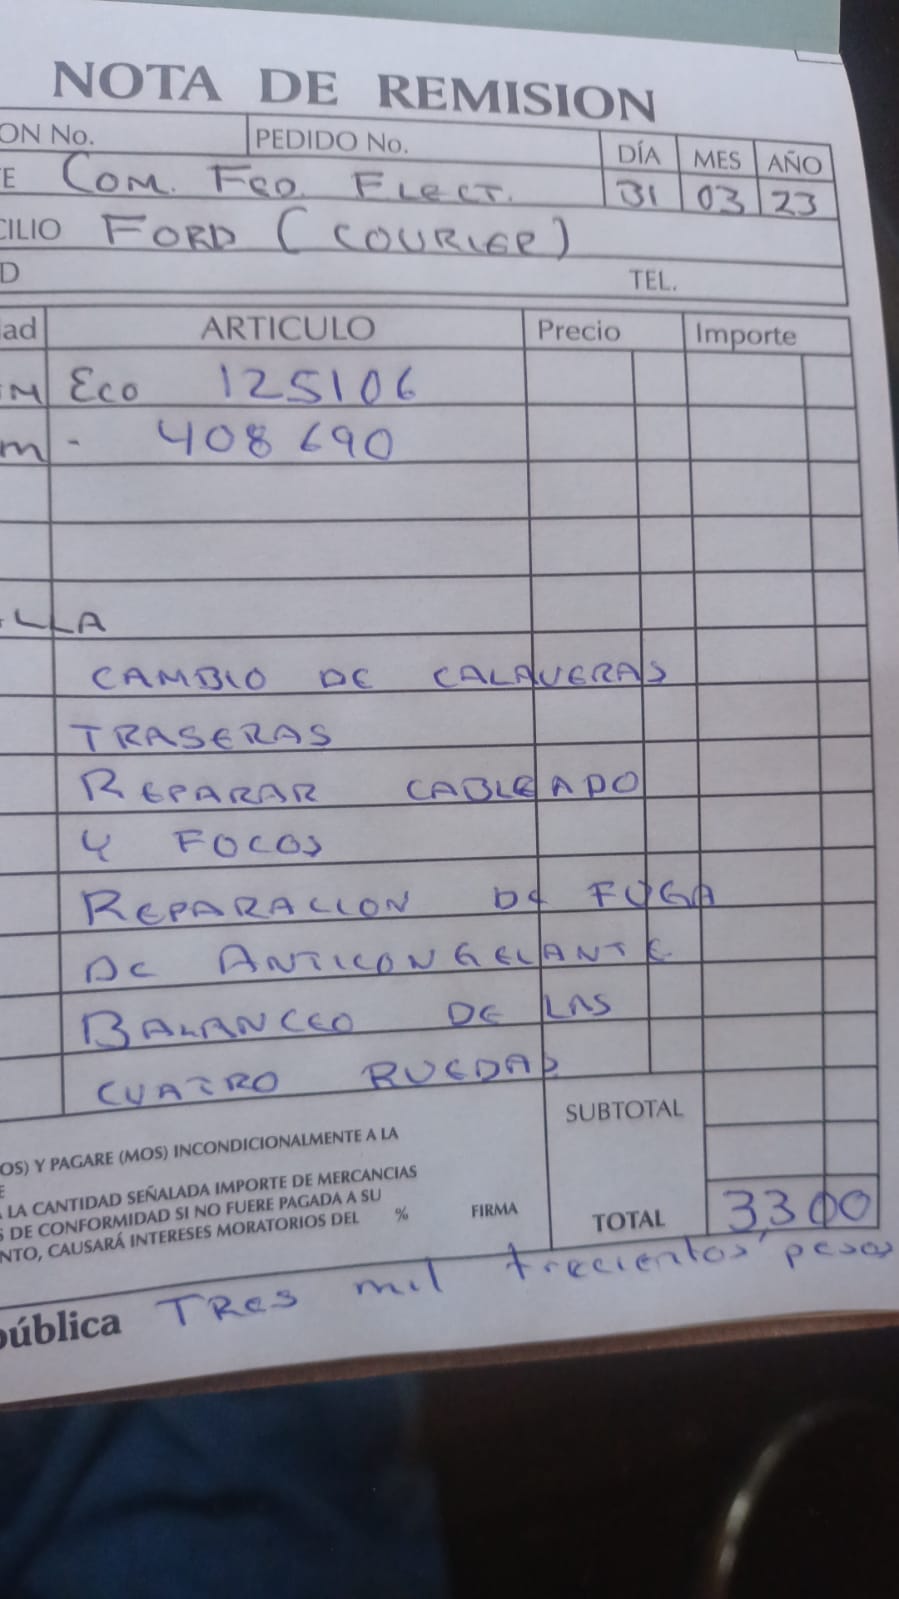 NOTA DE REMISION
ON No. PEDIDO No. DÍA MES AÑO
E COM. FED. ELECT. 31 03 23
CILIO FORD (COURIER)
D TEL.
ad ARTICULO Precio Importe
M ECO 125106
m - 408690
LLA
CAMBIO DE CALAVERAS
TRASERAS
REPARAR CABLEADO
Y FOCOS
REPARACION DE FUGA
DE ANTICONGELANTE
BALANCEO DE LAS
CUATRO RUEDAS
SUBTOTAL
OS) Y PAGARE (MOS) INCONDICIONALMENTE A LA
E
LA CANTIDAD SEÑALADA IMPORTE DE MERCANCIAS
S DE CONFORMIDAD SI NO FUERE PAGADA A SU
NTO, CAUSARÁ INTERESES MORATORIOS DEL % FIRMA
TOTAL 3300
pública Tres mil trecientos pesos